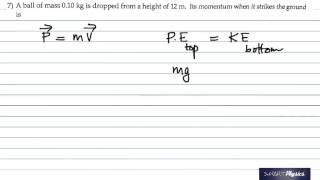 7) A ball of mass 0.10 kg is dropped from a height of 12 m. Its momentum when it strikes the ground
is
P⃗ = mV⃗ P.E top = KE bottom
mg